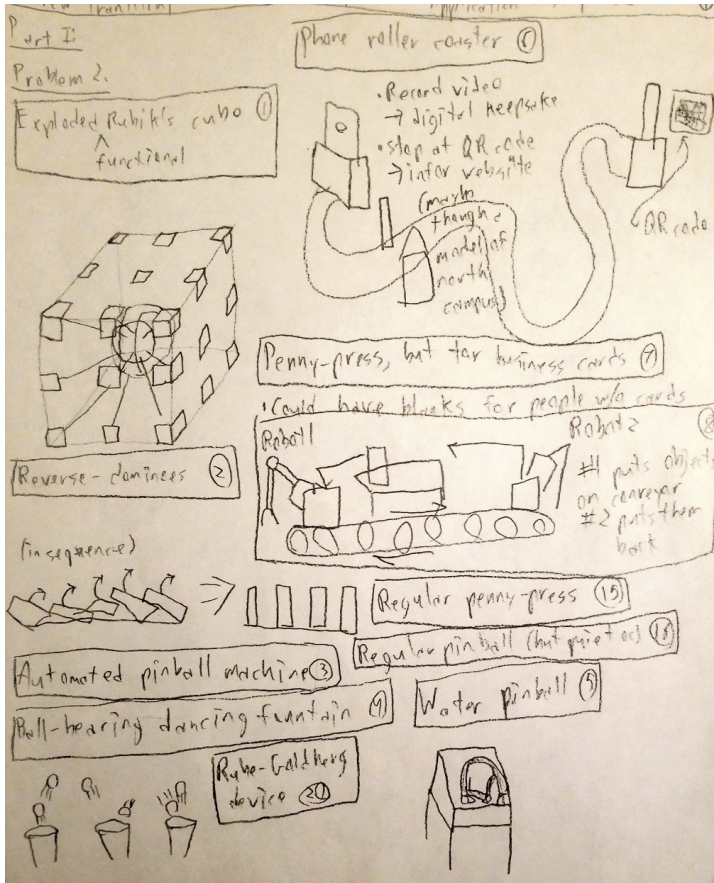 Part I:
Problem 2.
Exploded Rubik's cube ①
^
functional
Reverse-dominoes ②
(in sequence)
Automated pinball machine ③
Ball-bearing dancing fountain ④
Rube-Goldberg
device ⑳
Phone roller coaster ⑥
• Record video
→ digital keepsake
• stop at QR code
→ infor website
(maybe
though a
model of
north
campus)
QR code
Penny-press, but for business cards ⑦
• Could have blanks for people w/o cards
⑧
Robot 1
Robot 2
#1 puts objects
on conveyor
#2 puts them
back
Regular penny-press ⑮
Regular pinball (but quieter)
Water pinball ⑤